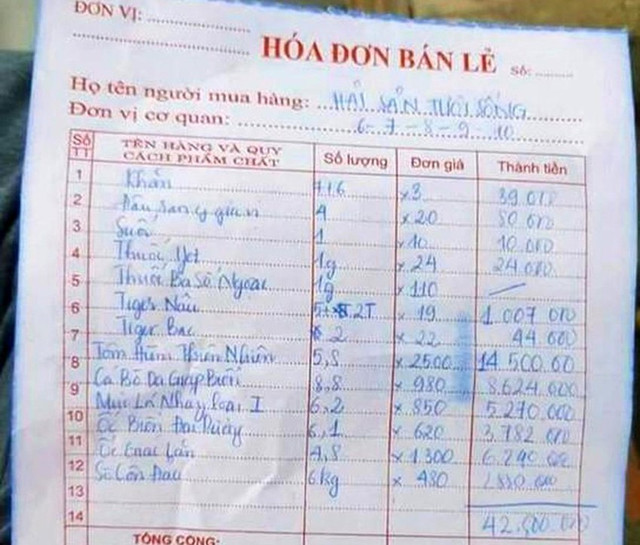 ĐƠN VỊ:
HÓA ĐƠN BÁN LẺ Số:
Họ tên người mua hàng: HẢI SẢN TƯƠI SỐNG
Đơn vị cơ quan: 6-7-8-9-10
Số TT TÊN HÀNG VÀ QUY CÁCH PHẨM CHẤT Số lượng Đơn giá Thành tiền
1 Khăn x3 39.000
2 4 x20 80 000
3 Suối 1 x10 10.000
4 Thuốc Jet 1g x24 24.000
5 Thuốc Ba Số Ngoại 1g x110
6 Tiger Nâu 2T x 19 1.007 000
7 Tiger Bạc 2 x 22 44.000
8 Tôm Hùm Thiên Nhiên 5,8 x 2500 14 500.00
9 Cá Bò Da Giáp Biển 8,8 x 980 8.624.000
10 Mực Lá Nháy loại I 6,2 x 850 5.270.000
11 Ốc Biển Đại 6,1 x 620 3.782 000
12 Ốc 4,8 x 1300 6.240 000
13 Sò Côn Đảo 6kg x 480 2.880.000
14 42.500.000
TỔNG CỘNG: